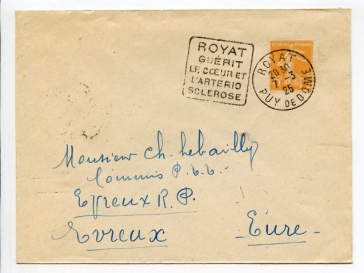 ROYAT
GUÉRIT
LE CŒUR ET
L'ARTÉRIO
SCLEROSE
ROYAT
20 30
7 - 3
25
PUY DE DOME
Monsieur Ch. Lebailly
Commis P.
R.P.
Evreux
Eure